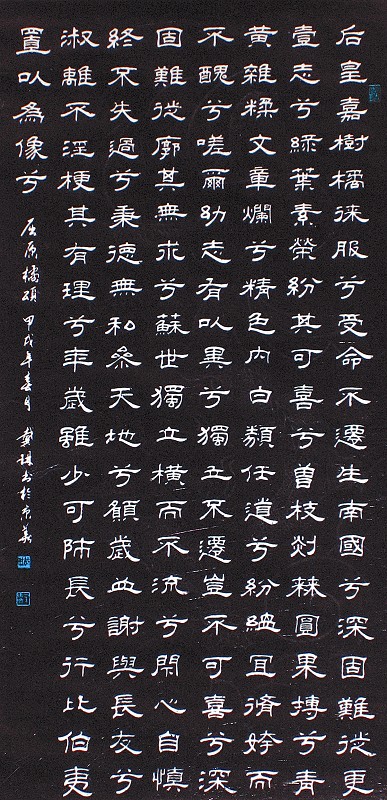 后皇嘉樹橘徠服兮受命不遷生南國兮深固難徙更
壹志兮綠葉素榮紛其可喜兮曾枝剡棘圓果摶兮青
黃雜糅文章爛兮精色內白類任道兮紛縕宜脩姱而
不醜兮嗟爾幼志有以異兮獨立不遷豈不可喜兮深
固難徙廓其無求兮蘇世獨立橫而不流兮閉心自慎
終不失過兮秉德無私參天地兮願歲並謝與長友兮
淑離不淫梗其有理兮年歲雖少可師長兮行比伯夷
置以為像兮
屈原橘頌 甲戌年春月 戴书於京華